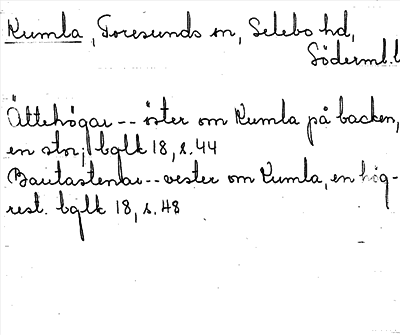 Kumla, Toresunds sn, Selebo hd,
Söderml.l
Ättehögar -- öster om Kumla på backen,
en stor; bglk 18, s. 44
Bautastenar -- vester om Kumla, en hög-
rest. bglk 18, s. 48